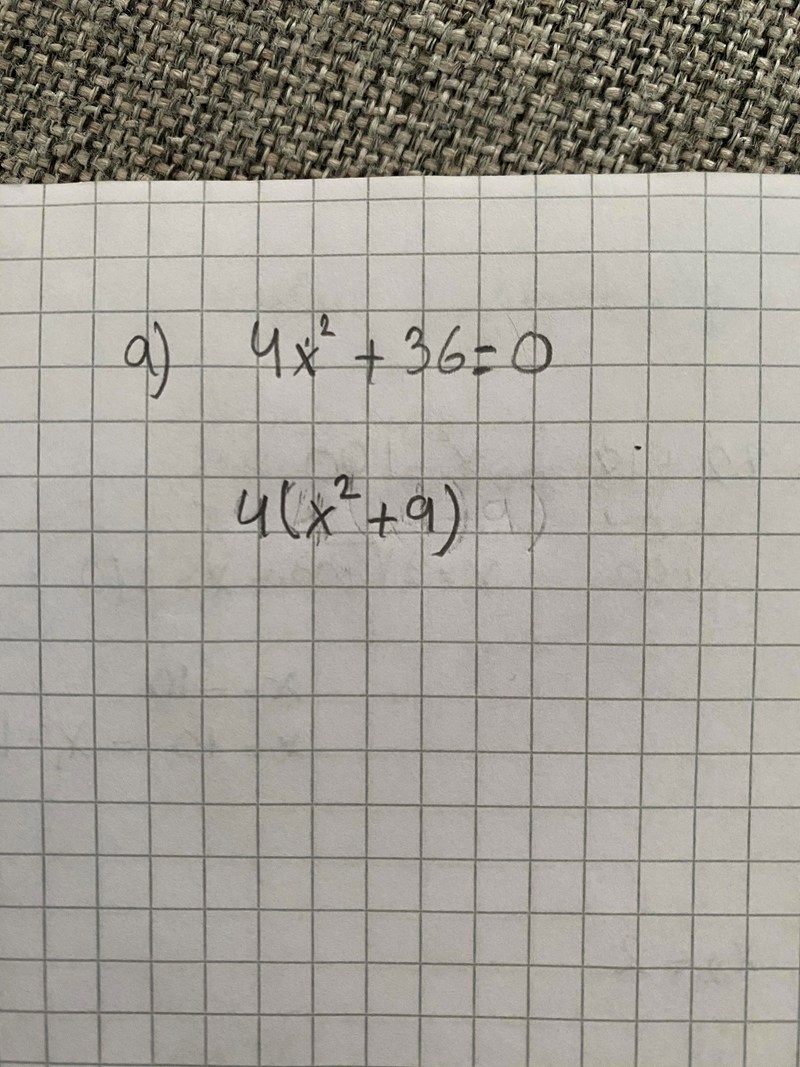 a) 4x² + 36 = 0
4(x² + 9)